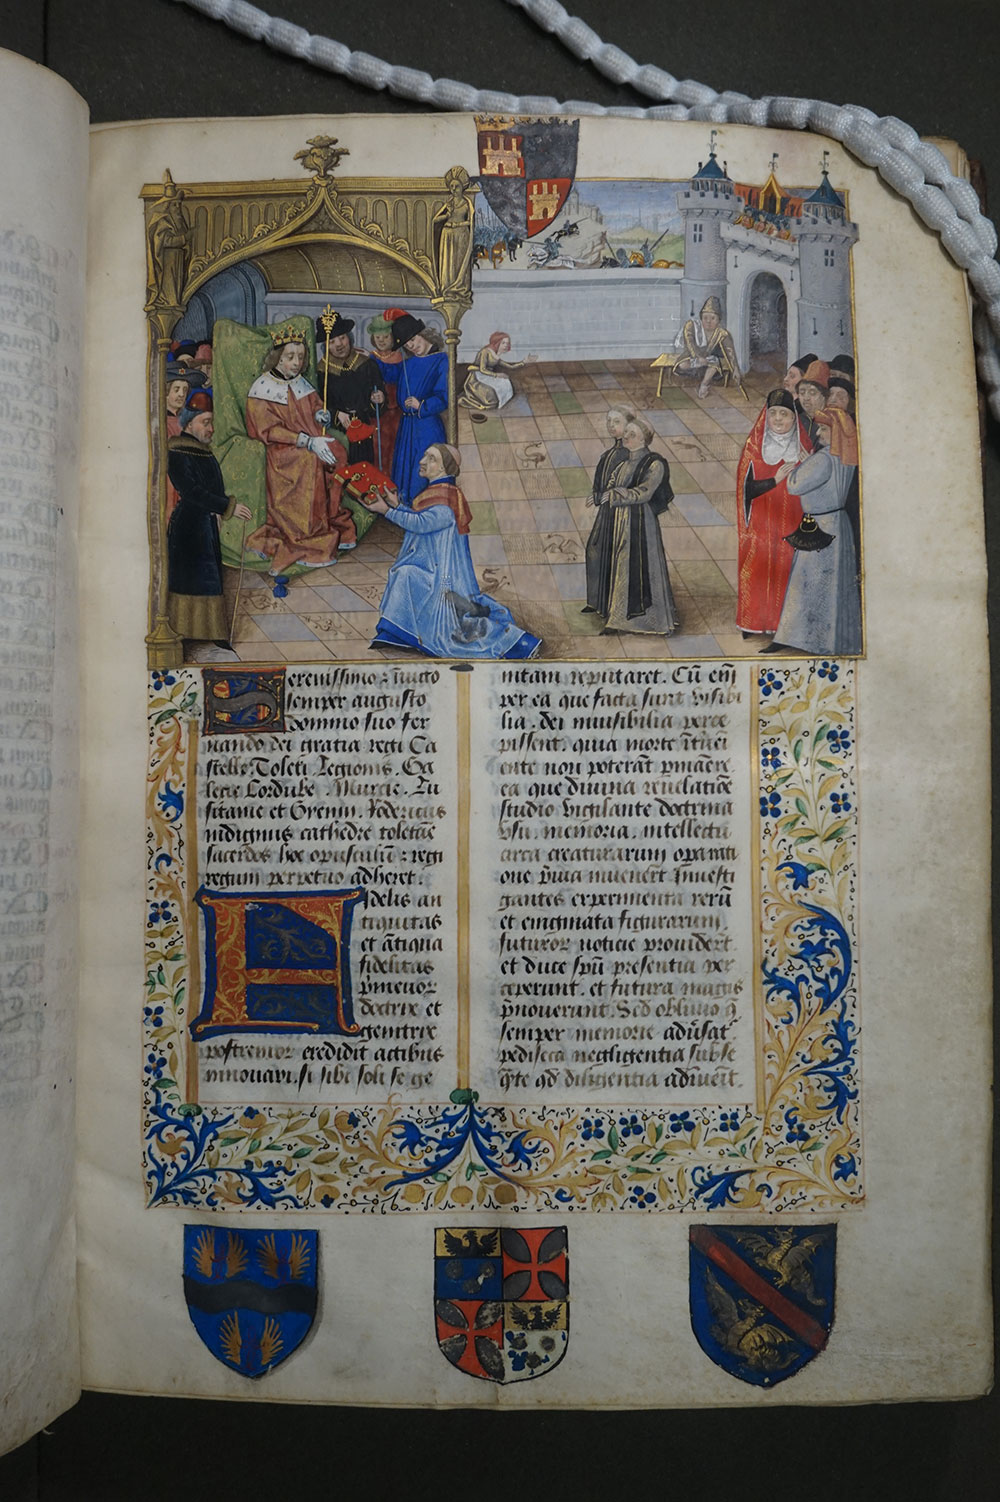 Serenissimo ⁊ inuicto
semper augusto
domino suo fer
nando dei gratia regi Ca
stelle. Toleti. Legionis. Ga
lecie Cordube. Murcie. Lu
sitanie et Gyenni. Rodericus
indignus cathedre toletāe
sacerdos hoc opusculū ⁊ regi
regum perpetuo adheret.
Fidelis an
tiquitas
et ātiqua
fidelitas
p̄meuor
doctrix et
genitrix
postremor credidit actibus
innovari. si sibi soli se ge
nitam reputaret. Cū enī
per ea que facta sunt visibi
lia. dei inuisibilia perce
pissent. quia morte
ente non poterāt
ea que divina reuelatiōe
studio vigilante doctrina
vsu. memoria. intellectu
circa creaturarum operati
one p̄uia inuenerūt Inuesti
gantes experimenta rerū
et enigmata figurarum.
futuror noticie prouiderūt
et duce spū presentia per
ceperunt. et futura magis
p̄nouerunt. Sed obliuio q̄
semper memorie
pedisecā negligentia
qd diligentia adinuenit.